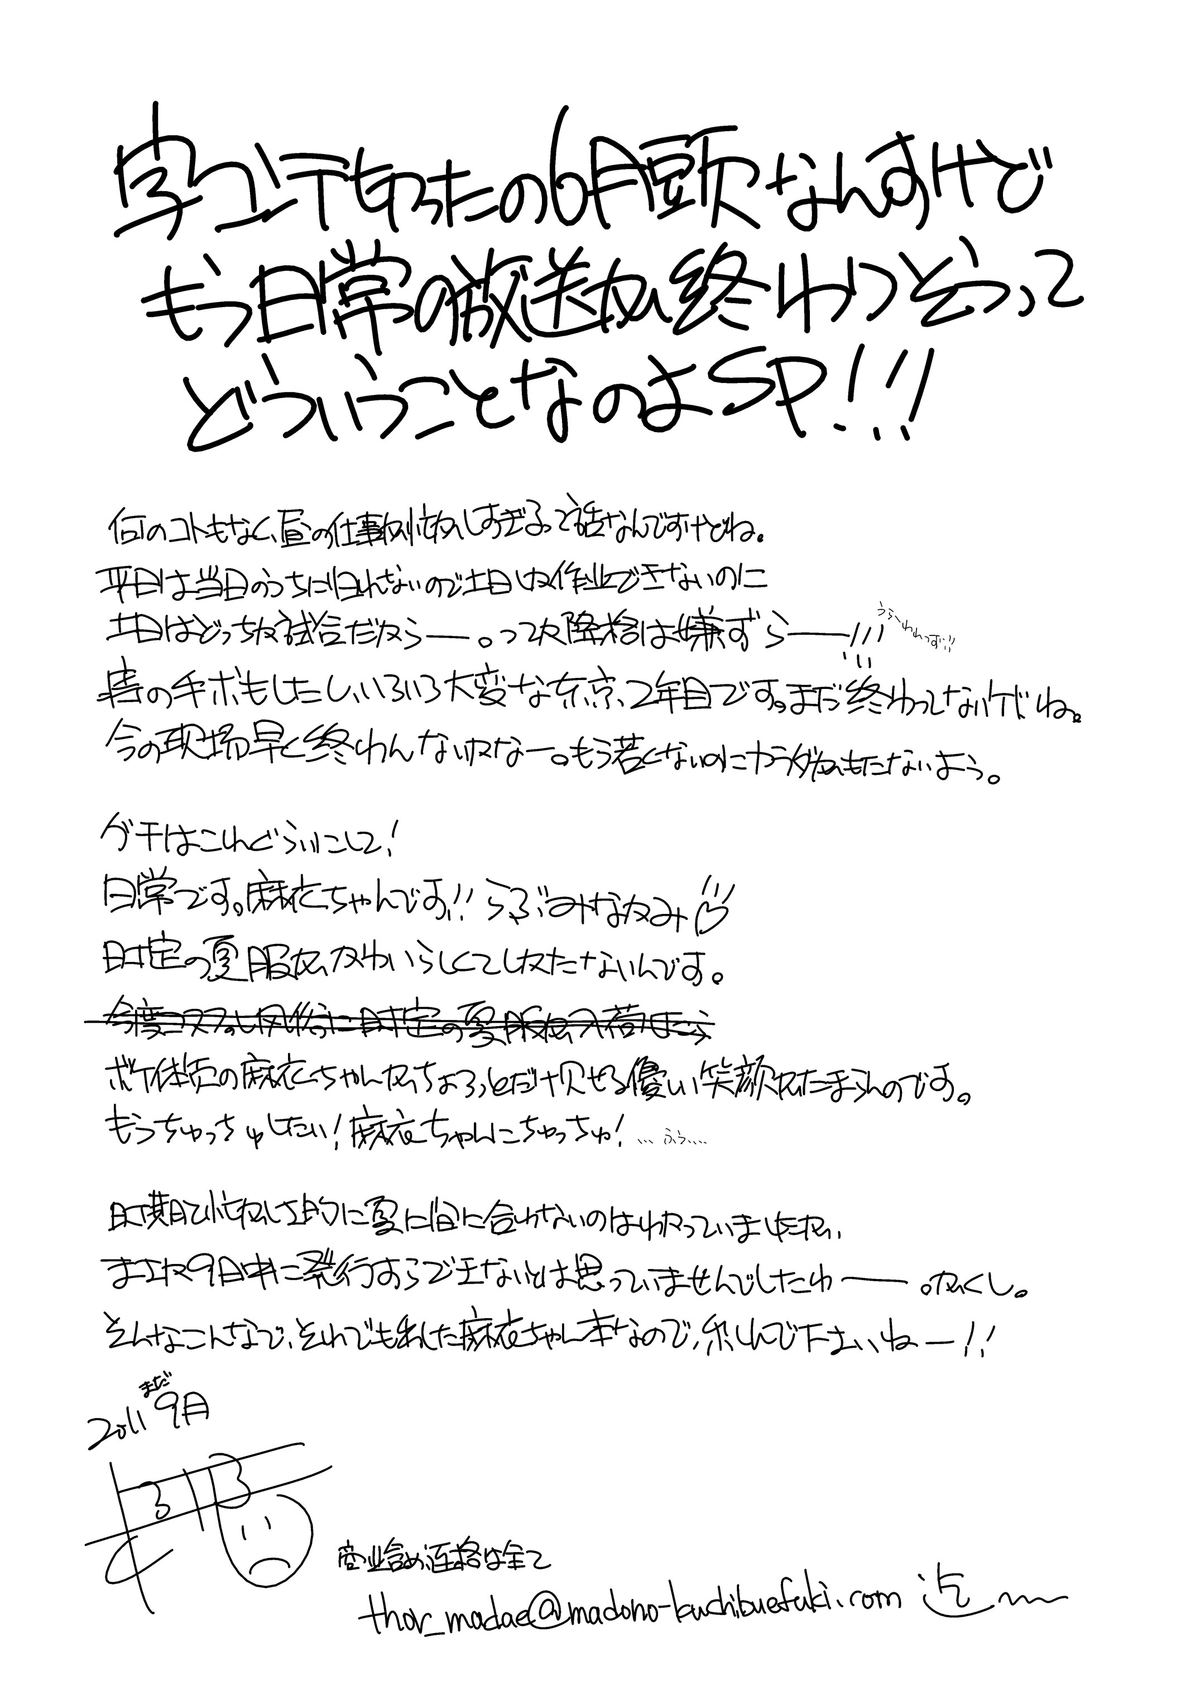 字コンテ切ったの6月頭なんすけど
もう日常の放送が終わりそうって
どういうことなのよSP!!!
何のコトもなく、昼の仕事が忙しすぎるって話なんですけどね。
平日は当日のうちに帰れないので土日しか作業できないのに
土日はどっちか試合だからー。って次降格は嫌ずらー!!!
うらーわれっず!!
妻の手术もしたし、いろいろ大変な東京、2年目です。まだ終わってないけどね。
今の現場早く終わんないかなー。もう若くないのにカラダがもたないよう。
グチはこれぐらいにして!
日常です。麻衣ちゃんです!! らぶみなかみ♡
時定の夏服がかわいらしくてしかたないんです。
今度コスプレ風俗に時定の夏服が入荷したら
ボケ体質の麻衣ちゃんがちょろっとだけ見せる優しい笑顔がたまらんのです。
もうちゅっちゅしたい!麻衣ちゃんにちゅっちゅ! … ふぅ….
時期と忙しさ的に夏に間に合わないのはわかっていましたが、
まさか9月中に発行すらできないとは思っていませんでしたわー。がくし。
そんなこんなで、それでも出した麻衣ちゃん本なので、楽しんで下さいねー!!
2011 まだ9月
商業含め、連絡は全て
thor_madae@madono-kuchibuefuki.com 迄〜